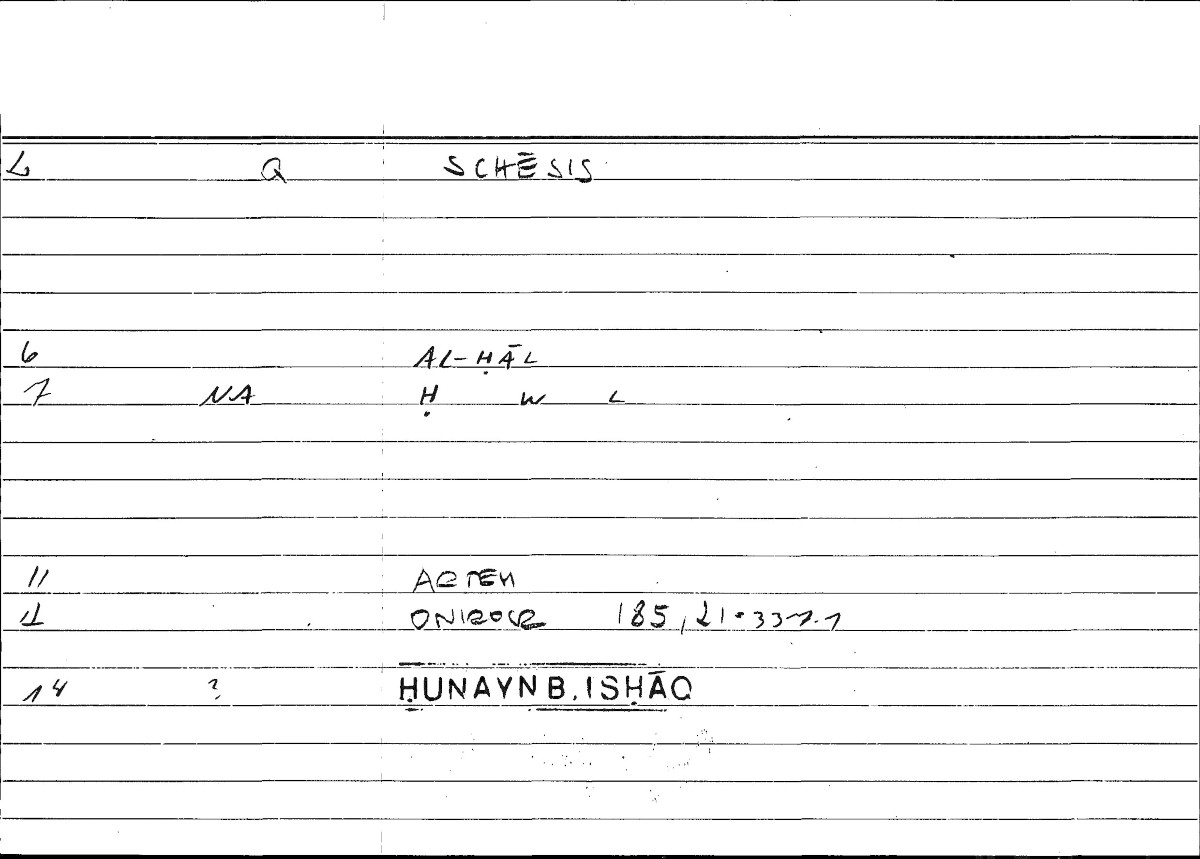 L Q SCHĒSIS
6 AL-ḤĀL
7 NA Ḥ W L
11 ARTEM
ONIROCR 185,21=337.1
14 ? ḤUNAYN B. ISḤĀQ